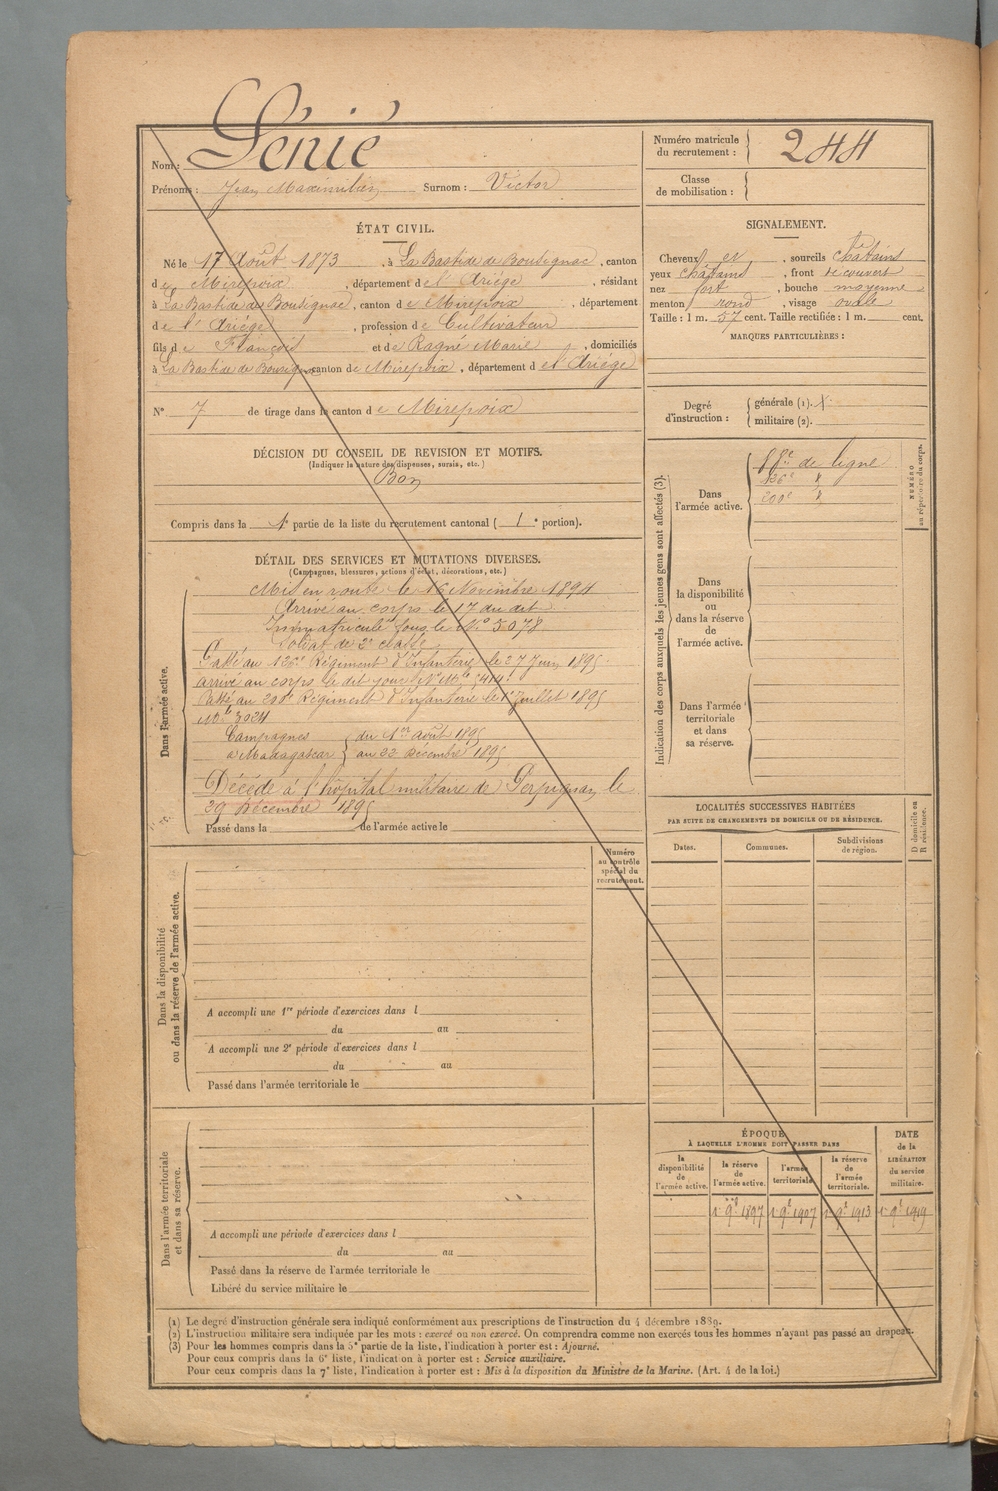 Nom : Génié
Prénoms : Jean Maximilien Surnom : Victor
Numéro matricule du recrutement : 244
Classe de mobilisation :
ÉTAT CIVIL.
Né le 17 Août 1873, à La Bastide de Bousignac, canton
de Mirepoix, département de l'Ariége, résidant
à La Bastide de Bousignac, canton de Mirepoix, département
de l'Ariége, profession de Cultivateur
fils de François et de Ragné Marie, domiciliés
à La Bastide de Bousignac canton de Mirepoix, département de l'Ariége
N° 7 de tirage dans le canton de Mirepoix
SIGNALEMENT.
Cheveux et , sourcils chatains
yeux chatains , front découvert
nez fort , bouche moyenne
menton rond , visage ovale
Taille : 1 m. 57 cent. Taille rectifiée : 1 m. cent.
MARQUES PARTICULIÈRES :
Degré d'instruction : générale (1).
militaire (2).
DÉCISION DU CONSEIL DE REVISION ET MOTIFS.
(Indiquer la nature des dispenses, sursis, etc.)
Bon
Compris dans la 1e partie de la liste du recrutement cantonal ( 1 e portion).
DÉTAIL DES SERVICES ET MUTATIONS DIVERSES.
(Campagnes, blessures, actions d'éclat, décorations, etc.)
Dans l'armée active.
Mis en route le 16 Novembre 1894
Arrivé au corps le 17 du dit
Immatriculé sous le N° 5078
Soldat de 2e classe
Passé au 126e Régiment d'Infanterie le 27 Juin 1895
arrivé au corps le dit jour
Passé au 200e Régiment d'Infanterie le 1er Juillet 1895
N° Mle 3024
Campagnes du 1er Août 1895
à Madagascar au 22 Décembre 1895
Décédé à l'hôpital militaire de Perpignan le
29 Décembre 1895
Passé dans la de l'armée active le
Indication des corps auxquels les jeunes gens sont affectés (3).
NUMÉRO au répertoire du corps.
Dans l'armée active.
88e de ligne
126e d
200e d
Dans la disponibilité ou dans la réserve de l'armée active.
Dans l'armée territoriale et dans sa réserve.
LOCALITÉS SUCCESSIVES HABITÉES
PAR SUITE DE CHANGEMENTS DE DOMICILE OU DE RÉSIDENCE.
Dates. Communes. Subdivisions de région. D domicile ou R résidence.
Numéro au contrôle spécial du recrutement.
Dans la disponibilité ou dans la réserve de l'armée active.
A accompli une 1re période d'exercices dans l
du au
A accompli une 2e période d'exercices dans l
du au
Passé dans l'armée territoriale le
Dans l'armée territoriale et dans sa réserve.
A accompli une période d'exercices dans l
du au
Passé dans la réserve de l'armée territoriale le
Libéré du service militaire le
ÉPOQUE
À LAQUELLE L'HOMME DOIT PASSER DANS
la disponibilité de l'armée active. la réserve de l'armée active. l'armée territoriale. la réserve de l'armée territoriale. DATE de la LIBÉRATION du service militaire.
1er 9bre 1897 1er 9bre 1907 1er 9bre 1913 1er 9bre 1919
(1) Le degré d'instruction générale sera indiqué conformément aux prescriptions de l'instruction du 4 décembre 1889.
(2) L'instruction militaire sera indiquée par les mots : exercé ou non exercé. On comprendra comme non exercés tous les hommes n'ayant pas passé au drapeau.
(3) Pour les hommes compris dans la 5e partie de la liste, l'indication à porter est : Ajourné.
Pour ceux compris dans la 6e liste, l'indication à porter est : Service auxiliaire.
Pour ceux compris dans la 7e liste, l'indication à porter est : Mis à la disposition du Ministre de la Marine. (Art. 4 de la loi.)